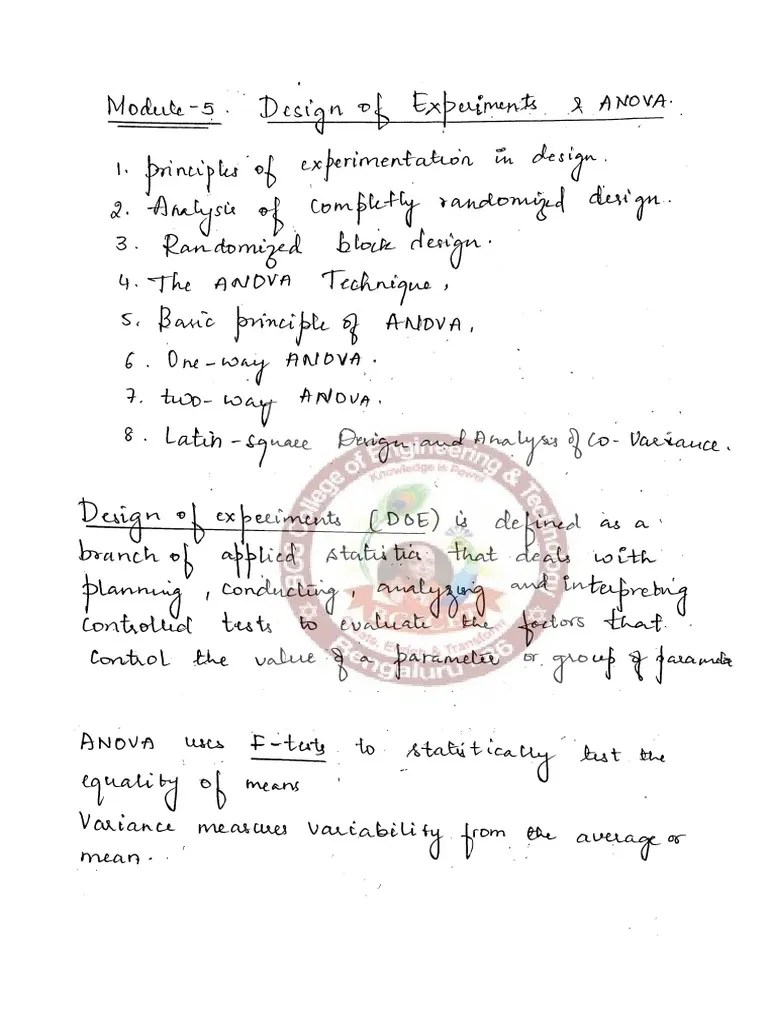 Module-5. Design of Experiments & ANOVA.
1. principles of experimentation in design.
2. Analysis of completly randomized design.
3. Randomized block design.
4. The ANOVA Technique,
5. Basic principle of ANOVA,
6. One-way ANOVA.
7. two-way ANOVA.
8. Latin-square Design and Analysis of Co-Variance.
College of Engineering & Technology
Knowledge is Power
Design of experiments (DOE) is defined as a
branch of applied statistics that deals with
planning, conducting, analyzing and interpreting
controlled tests to evaluate the factors that
control the value of a parameter or group of parameter
Enrich & Transform
Bengaluru
ANOVA uses F-tests to statistically test the
equality of means
Variance measures variability from the average or
mean.